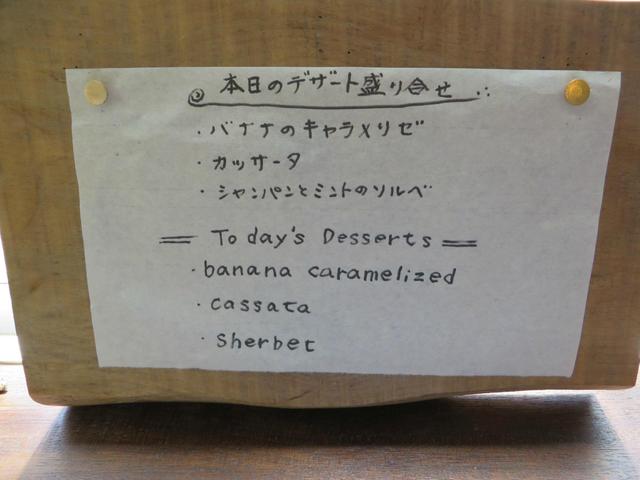 本日のデザート盛り合せ
・バナナのキャラメリゼ
・カッサータ
・シャンパンとミントのソルベ
To day's Desserts
・banana caramelized
・cassata
・sherbet